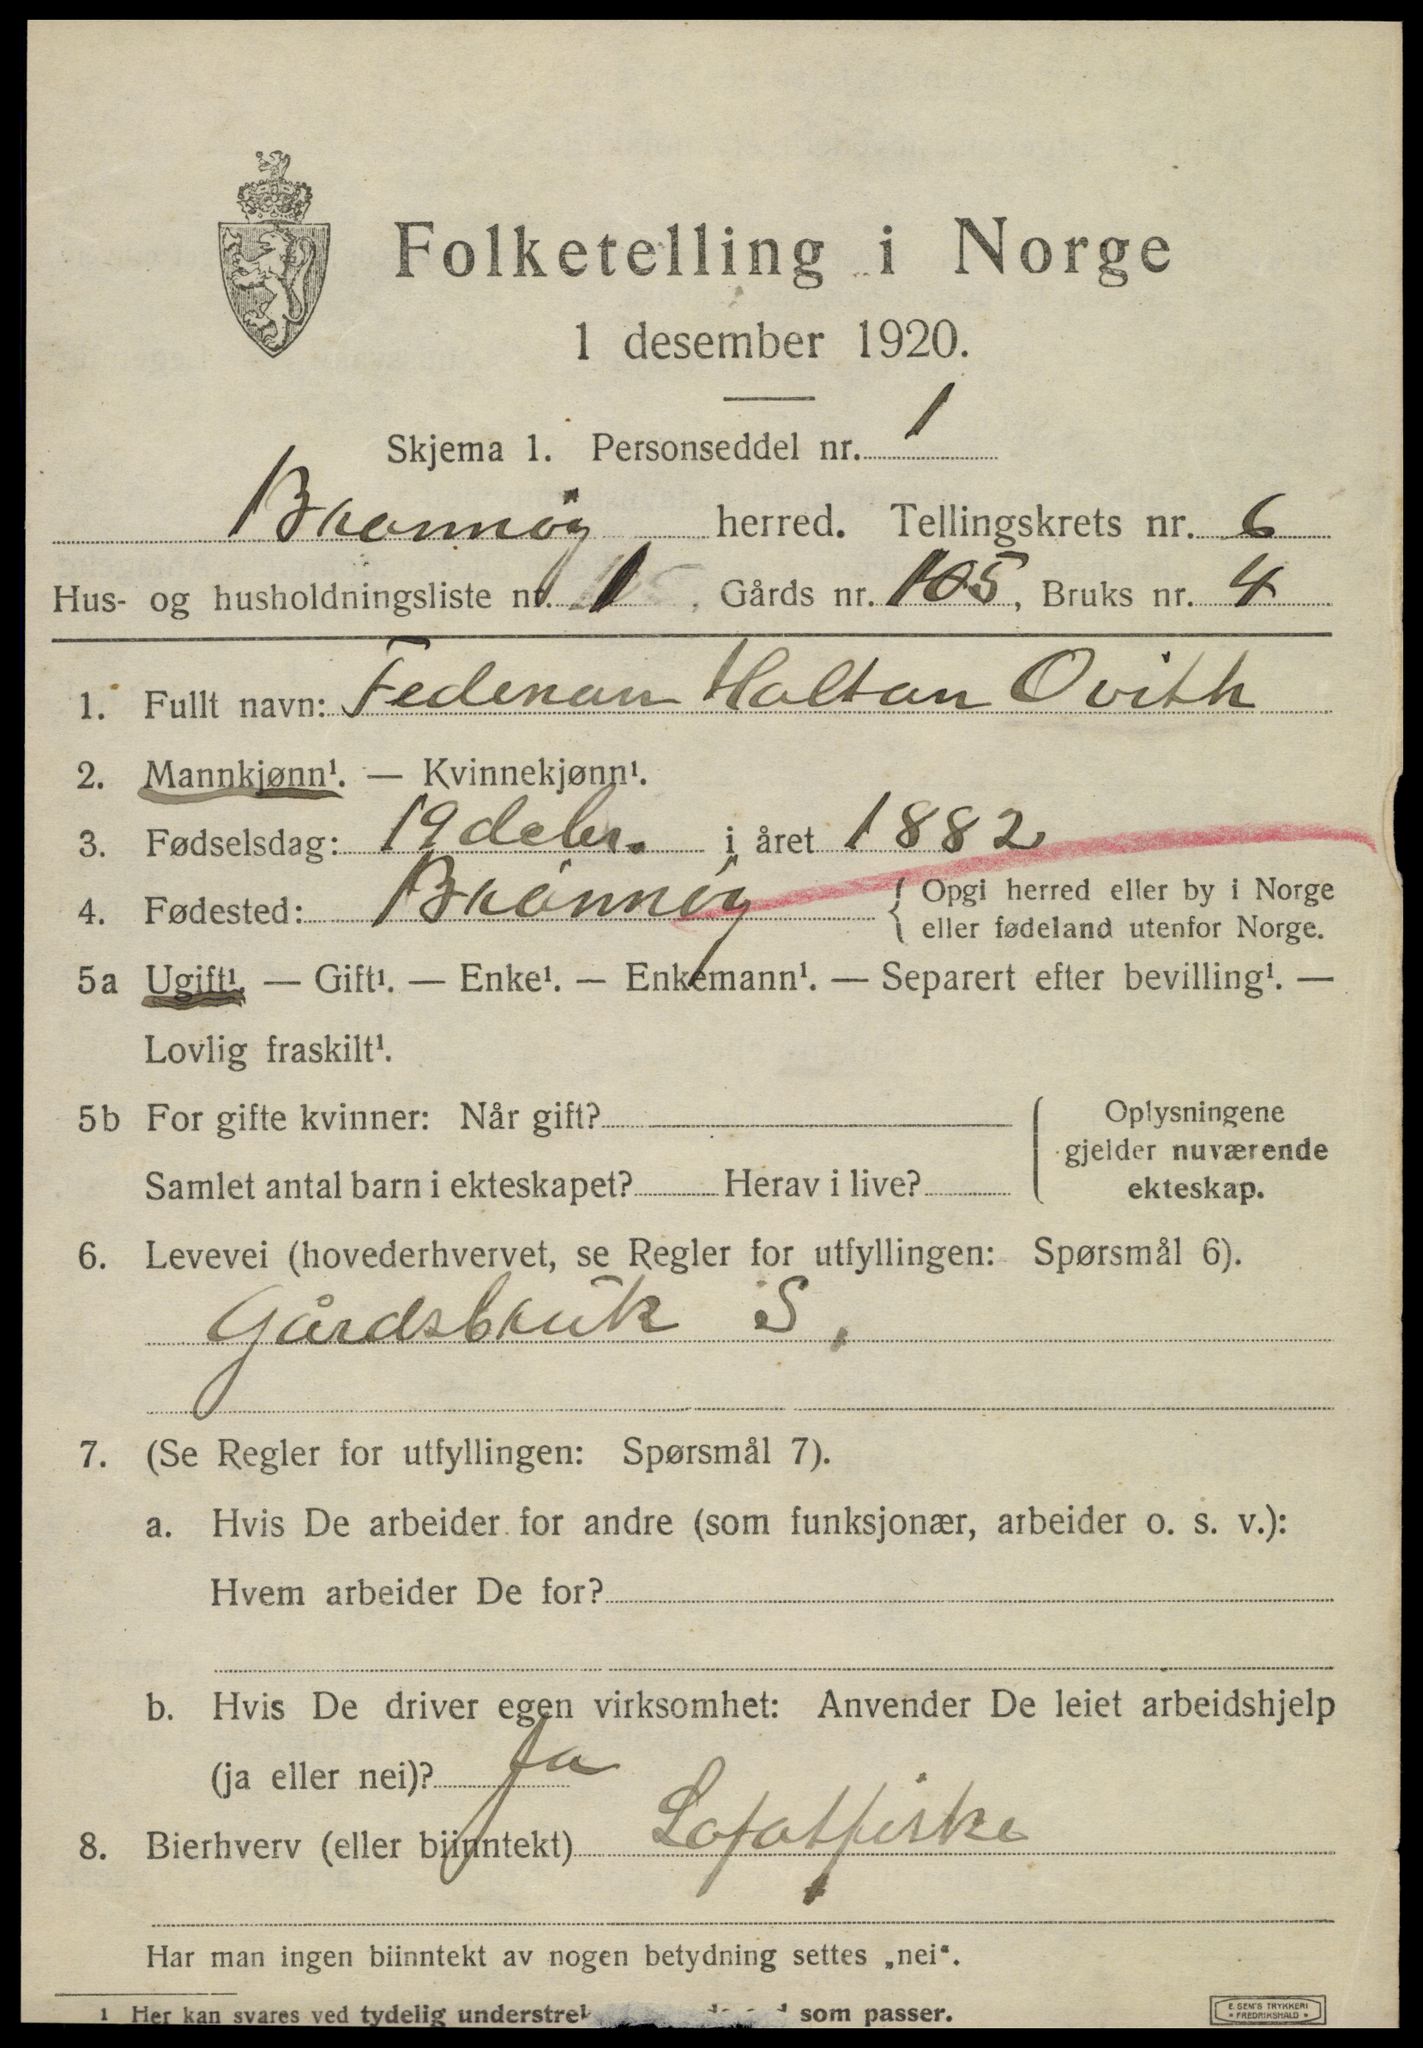 Folketelling i Norge
1 desember 1920.
Skjema 1. Personseddel nr. 1
Brønnøy herred. Tellingskrets nr. 6
Hus- og husholdningsliste nr. 1. Gårds nr. 105, Bruks nr. 4
1. Fullt navn: Federnan Holtan Ovith
2. Mannkjønn¹. — Kvinnekjønn¹.
3. Fødselsdag: 19 debr. i året 1882
4. Fødested: Brønnøy { Opgi herred eller by i Norge
eller fødeland utenfor Norge.
5a Ugift¹. — Gift¹. — Enke¹. — Enkemann¹. — Separert efter bevilling¹. —
Lovlig fraskilt¹.
5b For gifte kvinner: Når gift?
Samlet antal barn i ekteskapet? Herav i live?
Oplysningene
gjelder nuværende
ekteskap.
6. Levevei (hovederhvervet, se Regler for utfyllingen: Spørsmål 6).
Gårdsbruk S.
7. (Se Regler for utfyllingen: Spørsmål 7).
a. Hvis De arbeider for andre (som funksjonær, arbeider o. s. v.):
Hvem arbeider De for?
b. Hvis De driver egen virksomhet: Anvender De leiet arbeidshjelp
(ja eller nei)? Ja
8. Bierhverv (eller biinntekt) Lofotfiske
Har man ingen biinntekt av nogen betydning settes „nei“.
1 Her kan svares ved tydelig understrek som passer.
E. SEM'S TRYKKERI
FREDRIKSHALD